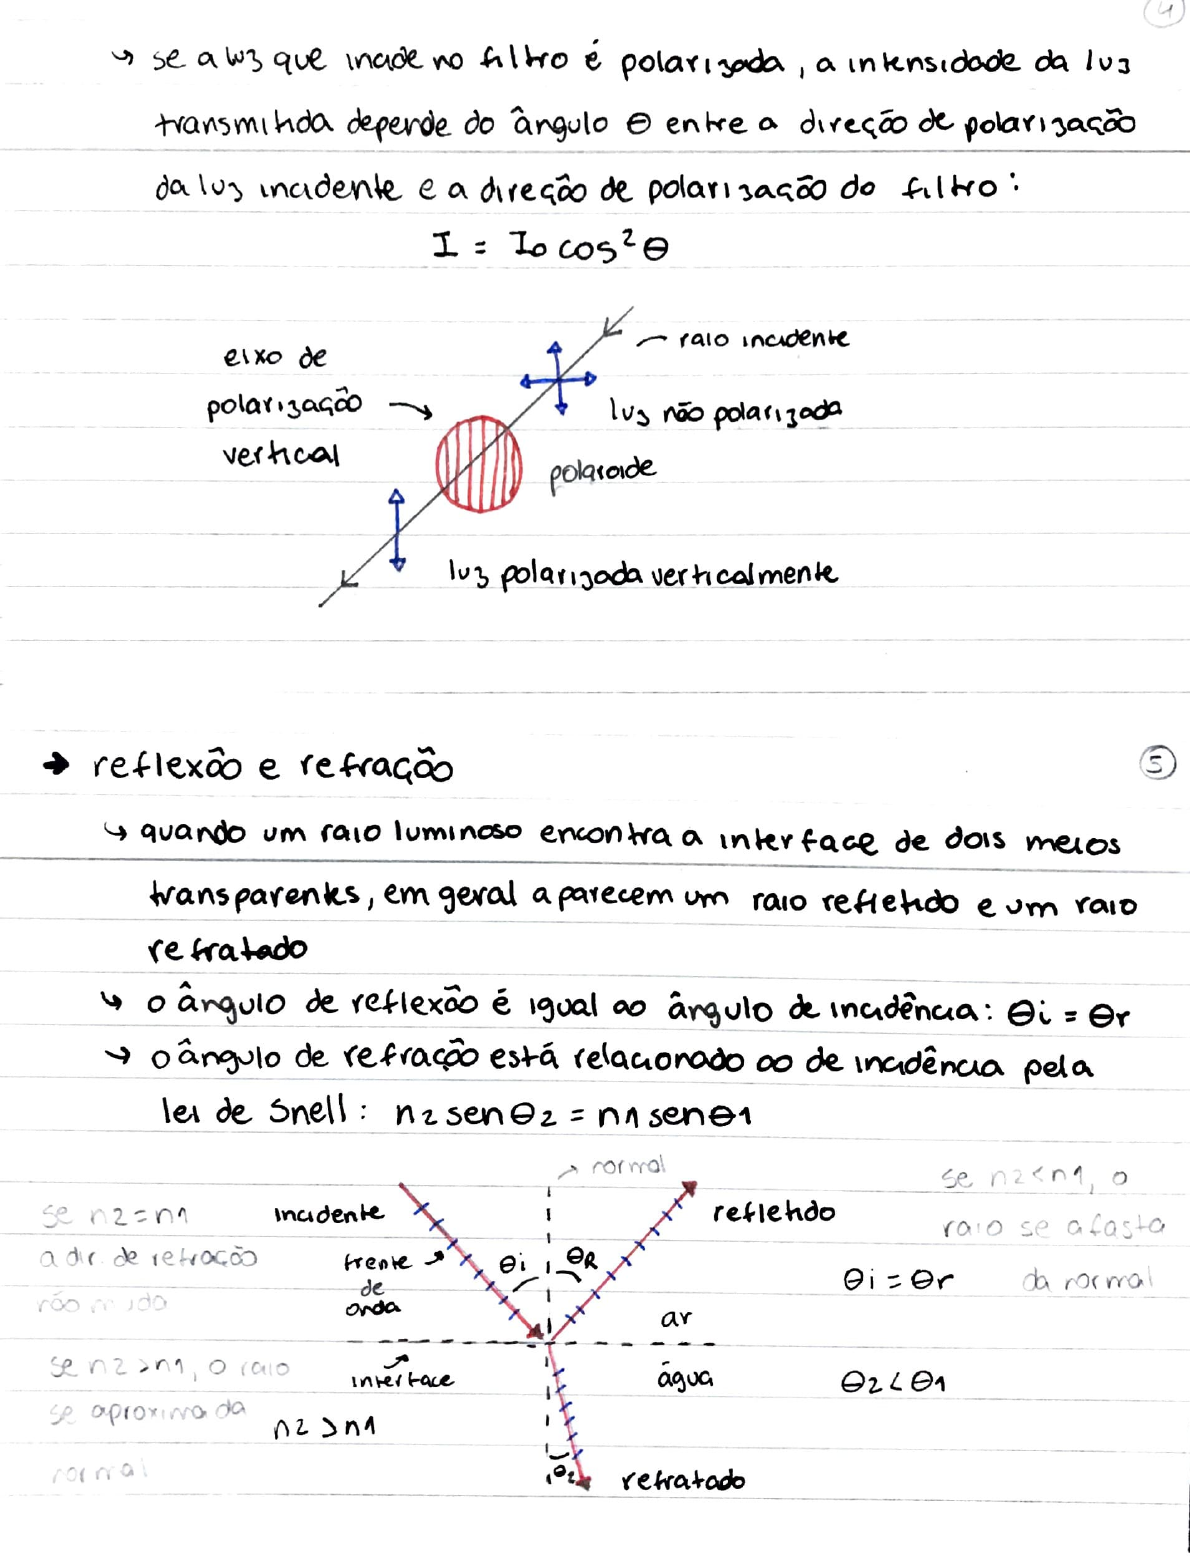 4
↳ se a luz que incide no filtro é polarizada, a intensidade da luz
transmitida depende do ângulo θ entre a direção de polarização
da luz incidente e a direção de polarização do filtro:
I = I₀ cos²θ
raio incidente
eixo de
polarização
vertical
luz não polarizada
polaroide
luz polarizada verticalmente
→ reflexão e refração
5
↳ quando um raio luminoso encontra a interface de dois meios
transparentes, em geral aparecem um raio refletido e um raio
refratado
↳ o ângulo de reflexão é igual ao ângulo de incidência: θi = θr
↳ o ângulo de refração está relacionado ao de incidência pela
lei de Snell: n2 sen θ2 = n1 sen θ1
normal
se n2 = n1
a dir. de refração
não muda
incidente
frente
de
onda
θi
θR
refletido
se n2 < n1, o
raio se afasta
da normal
θi = θr
ar
se n2 > n1, o raio
se aproxima da
normal
interface
n2 > n1
água
θ2 < θ1
θ2
refratado